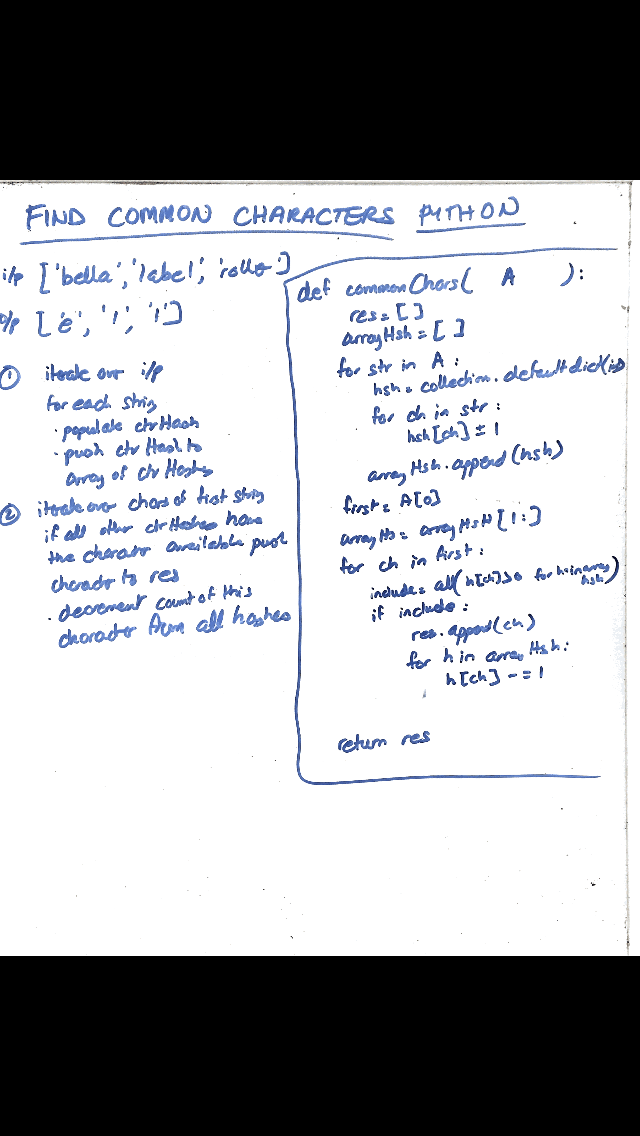 FIND COMMON CHARACTERS PYTHON
i/p ['bella', 'label', 'roller']
o/p ['e', 'l', 'l']
① iterate over i/p
for each string
· populate ctrHash
· push ctr Hash to
array of ctr Hashes
② iterate over chars of first string
if all other ctrHashes have
the character available push
character to res
· decrement count of this
character from all hashes
def commonChars( A ):
res = [ ]
arrayHsh = [ ]
for str in A :
hsh = collection.defaultdict(
for ch in str :
hsh[ch] += 1
arrayHsh.append(hsh)
first = A[0]
arrayHs = arrayHsH[1:]
for ch in first :
include = all(h[ch]>0 for h in array
hsh)
if include :
res.append(ch)
for h in arrayHsh:
h[ch] -= 1
return res